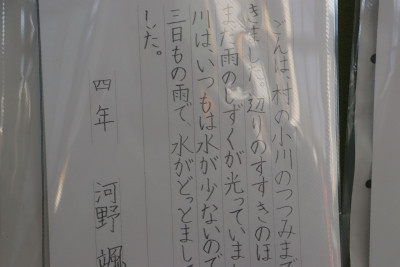 ごんは、村の小川のつつみまで
きました。辺りのすすきのほ
まだ雨のしずくが光っていま
川は、いつもは水が少ないので
三日もの雨で、水がどっとまして
した。
四年 河野 颯